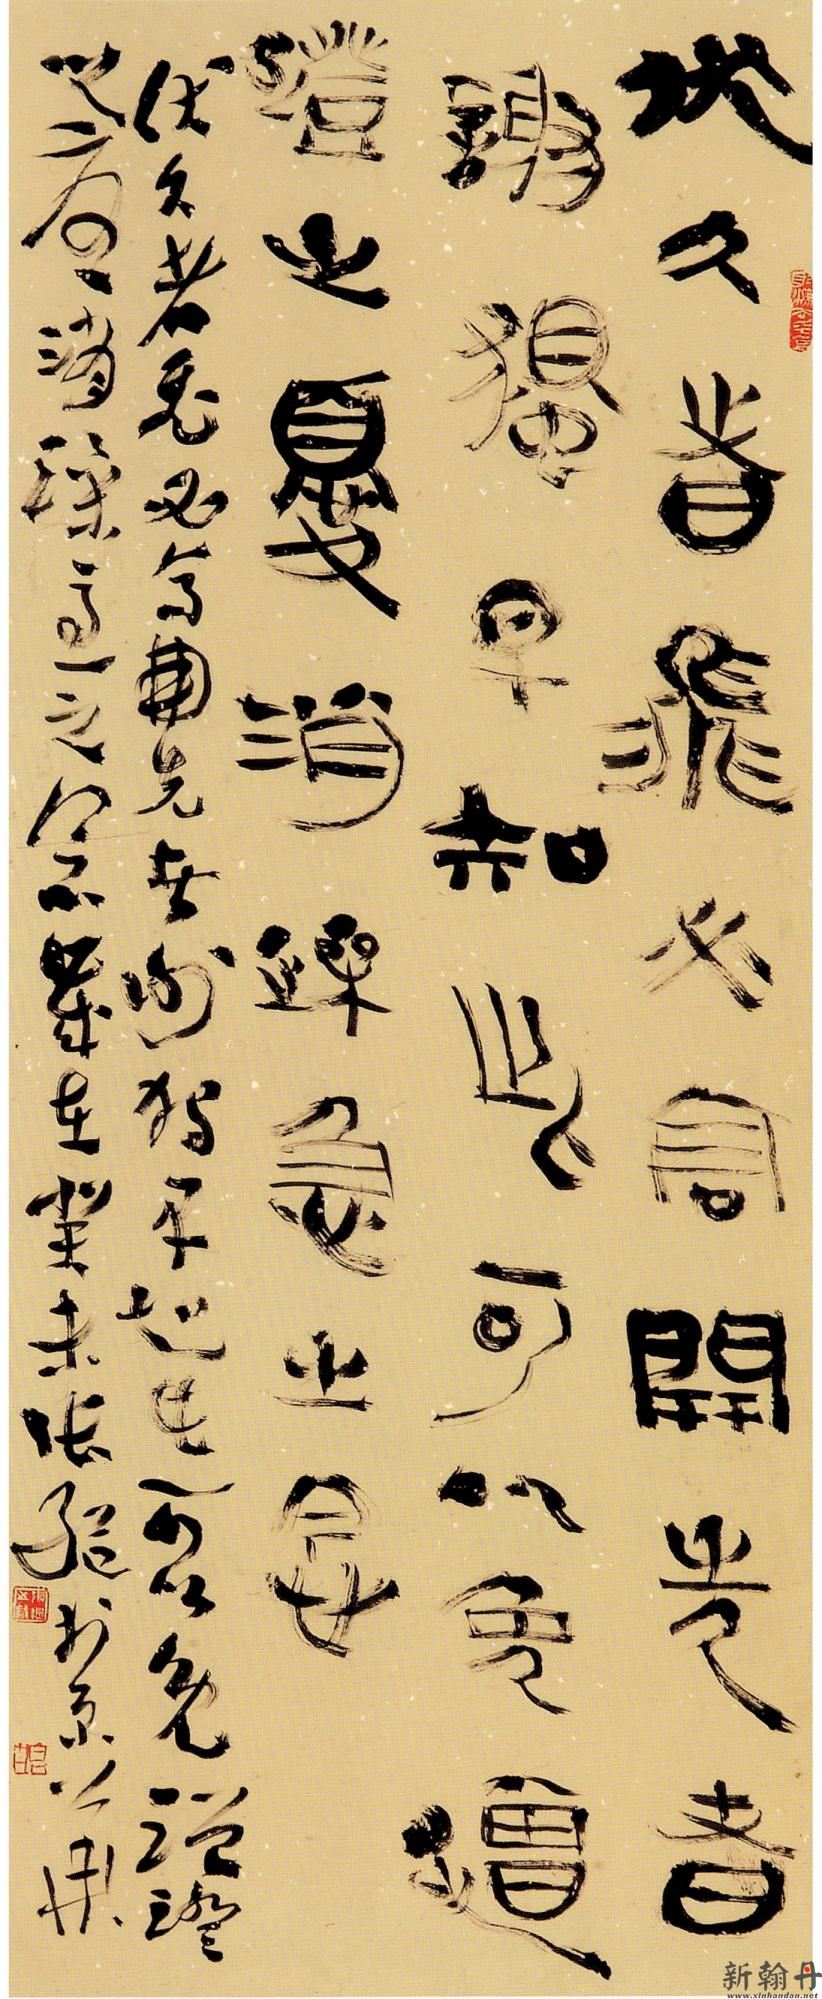 伏久者飛必高開先者
謝獨早知此可以免蹭
蹬之憂消躁急之念
伏久者飛必高開先者謝獨早知此可以免蹭蹬
之憂消躁急之念歲在癸未張繼於京
新翰丹
www.xinhandan.net